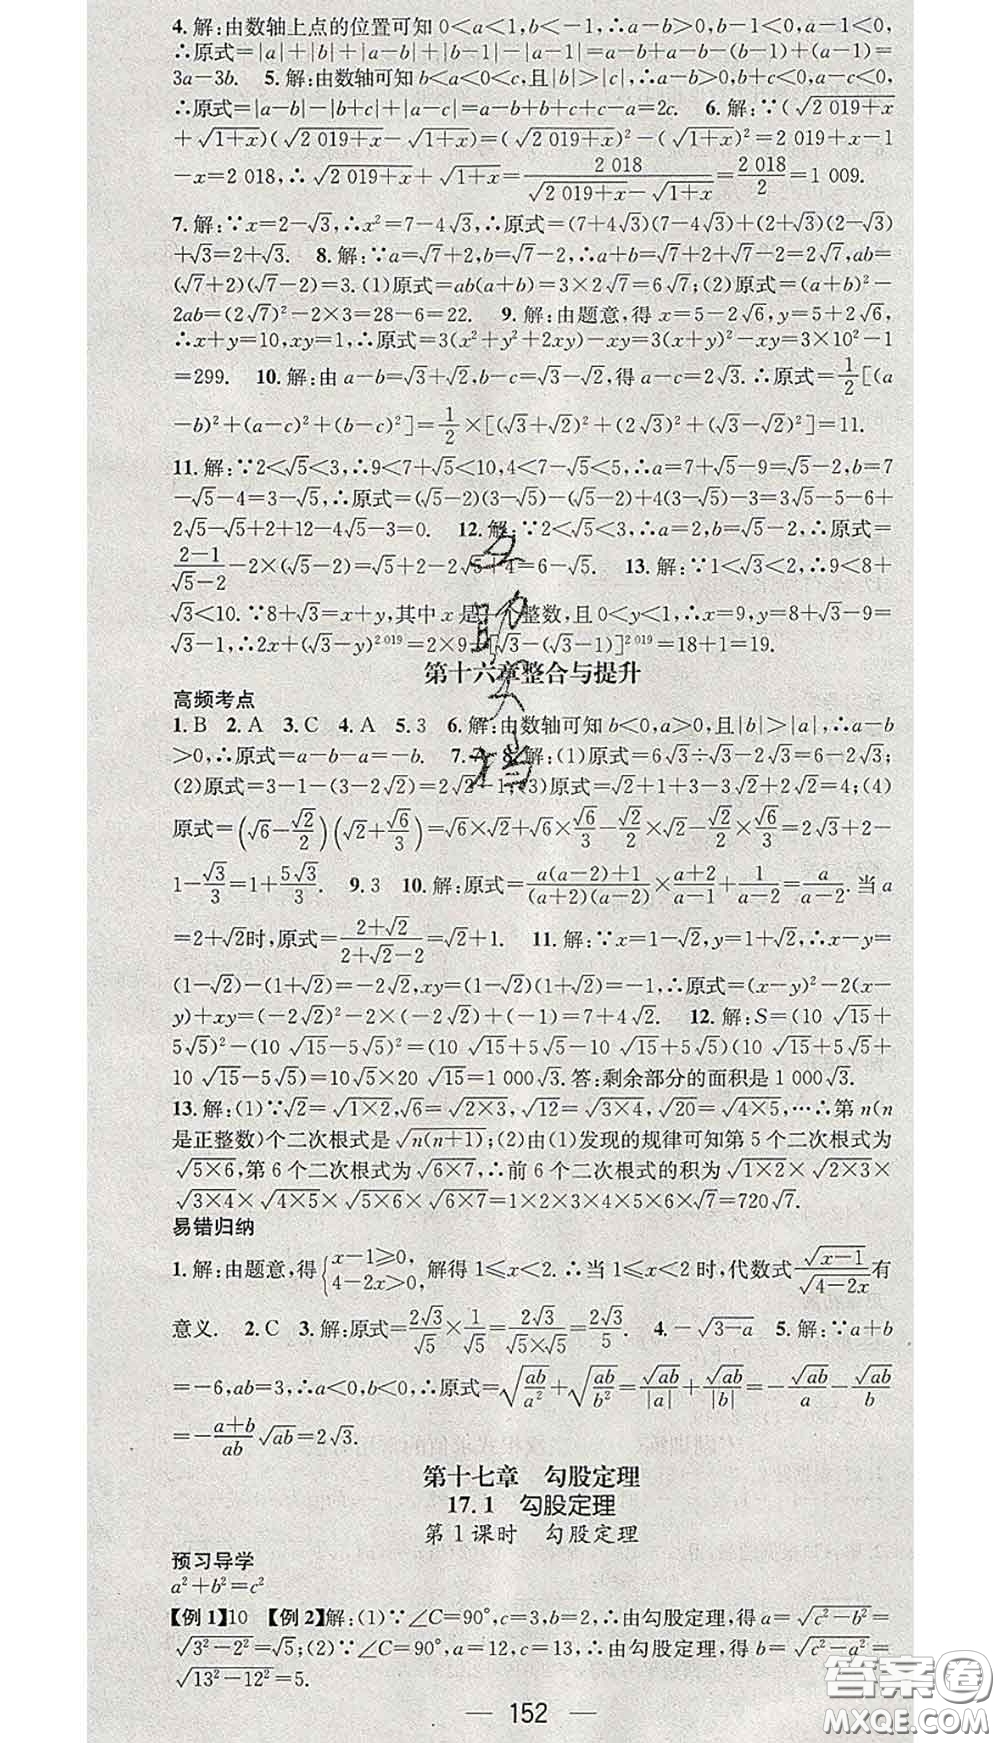 4.解:由数轴上点的位置可知 0<a<1,b<-1,∴a-b>0,b-1<0,a-1<0,
∴原式=|a|+|b|+|a-b|+|b-1|-|a-1|=a-b+a-b-(b-1)+(a-1)=
3a-3b. 5.解:由数轴可知 b<a<0<c,且|b|>|c|,∴a-b>0,b+c<0,a-c<0,
∴原式=|a-b|-|b+c|+|a-c|=a-b+b+c+c-a=2c. 6.解:∵(√(2 019+x)
+√(1+x))(√(2 019+x)-√(1+x))=(√(2 019+x))²-(√(1+x))²=2 019+x-1
-x=2 018,∴√(2 019+x)+√(1+x)=2 018/(√(2 019+x)-√(1+x))=2 018/2=1 009.
7.解:∵x=2-√3,∴x²=7-4√3,∴原式=(7+4√3)(7-4√3)+(2+√3)(2-√3)
+√3=2+√3. 8.解:∵a=√7+2,b=√7-2,∴a+b=√7+2+√7-2=2√7,ab=
(√7+2)(√7-2)=3.(1)原式=ab(a+b)=3×2√7=6√7;(2)原式=(a+b)²-
2ab=(2√7)²-2×3=28-6=22. 9.解:由题意,得 x=5-2√6,y=5+2√6,
∴x+y=10,xy=1,∴原式=3(x²+y²+2xy)-xy=3(x+y)²-xy=3×10²-1
=299. 10.解:由 a-b=√3+√2,b-c=√3-√2,得 a-c=2√3.∴原式=1/2[(a
-b)²+(a-c)²+(b-c)²]=1/2×[(√3+√2)²+(2√3)²+(√3-√2)²]=11.
11.解:∵2<√5<3,∴9<7+√5<10,4<7-√5<5,∴a=7+√5-9=√5-2,b=7
-√5-4=3-√5,∴原式=(√5-2)(3-√5)-(√5-2)+4(3-√5)-3=3√5-5-6+
2√5-√5+2+12-4√5-3=0. 12.解:∵2<√5<3,∴a=2,b=√5-2,∴原式=
(2-1)/(√5-2)-2×(√5-2)=√5+2-2√5+4=6-√5. 13.解:∵1<√3<2,∴9<8+
√3<10.∵8+√3=x+y,其中 x 是一个整数,且 0<y<1,∴x=9,y=8+√3-9=
√3-1,∴2x+(√3-y)²⁰¹⁹=2×9+[√3-(√3-1)]²⁰¹⁹=18+1=19.
第十六章整合与提升
高频考点
1.B 2.A 3.C 4.A 5.3 6.解:由数轴可知 b<0,a>0,且|b|>|a|,∴a-b
>0,∴原式=a-b-a=-b. 7. 8.解:(1)原式=6√3÷√3-2√3=6-2√3;
(2)原式=3-1-(3-2√2)=2√2-1;(3)原式=√2+1+3-3√2+2√2=4;(4)
原式=(√6-√2/2)(√2+√6/3)=√6×√2+√6×√6/3-√2/2×√2-√2/2×√6/3=2√3+2-
1-√3/3=1+5√3/3. 9.3 10.解:原式=(a(a-2)+1)/((a+2)(a-2))×(a+2)/(a-1)+1/(a-2)=a/(a-2).当 a
=2+√2时,原式=(2+√2)/(2+√2-2)=√2+1. 11.解:∵x=1-√2,y=1+√2,∴x-y=
(1-√2)-(1+√2)=-2√2,xy=(1-√2)(1+√2)=-1,∴原式=(x-y)²-2(x-
y)+xy=(-2√2)²-2×(-2√2)+(-1)=7+4√2. 12.解:S=(10 √15+
5√5)²-(10 √15-5√5)²=(10 √15+5√5-10 √15+5√5)(10 √15+5√5+
10 √15-5√5)=10√5×20 √15=1 000√3.答:剩余部分的面积是 1 000√3.
13.解:(1)∵√2=√(1×2),√6=√(2×3),√12=√(3×4),√20=√(4×5),…∴第 n(n
是正整数)个二次根式是√(n(n+1));(2)由(1)发现的规律可知第 5 个二次根式为
√(5×6),第 6 个二次根式为√(6×7),∴前 6 个二次根式的积为√(1×2)×√(2×3)×
√(3×4)×√(4×5)×√(5×6)×√(6×7)=1×2×3×4×5×6×√7=720√7.
易错归纳
1.解:由题意,得{x-1≥0, 4-2x>0, 解得 1≤x<2.∴当 1≤x<2 时,代数式√(x-1)/√(4-2x)有
意义. 2.C 3.解:原式=2√3/√5×1/√5=2√3/(√5×√5)=2√3/5. 4.-√(3-a) 5.解:∵a+b
=-6,ab=3,∴a<0,b<0,∴原式=√(ab/a²)+√(ab/b²)=√ab/|a|+√ab/|b|=-√ab/a-√ab/b
=-(a+b)/ab √ab=2√3.
第十七章 勾股定理
17.1 勾股定理
第 1 课时 勾股定理
预习导学
a²+b²=c²
【例1】10 【例2】解:(1)∵∠C=90°,c=3,b=2,∴由勾股定理,得 a=√(c²-b²)=
√(3²-2²)=√5;(2)∵∠C=90°,a=12,c=13,∴由勾股定理,得 b=√(c²-a²)=
√(13²-12²)=5.
— 152 —
答案卷
MXQE.COM